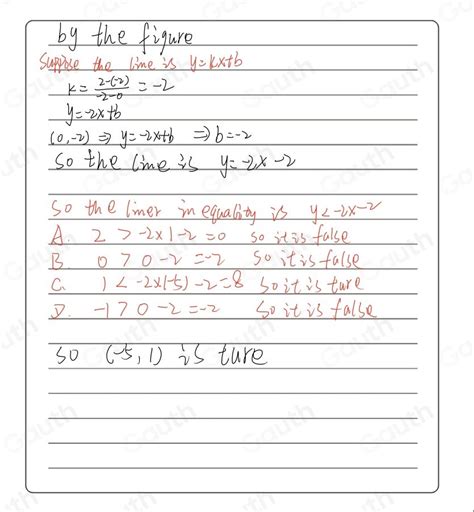 by the figure
Suppose the line is y=kx+b
k = 2-(-2)/-2-0 = -2
y=-2x+b
(0,-2) ⇒ y=-2x+b ⇒ b=-2
so the line is y=-2x-2
so the liner inequality is y<-2x-2
A. 2 > -2x1-2=0 so it is false
B 0 > 0-2=-2 so it is false
C. 1 < -2x(-5)-2=8 so it is ture
D. -1 > 0-2=-2 so it is false
so (-5,1) is ture
Gauth